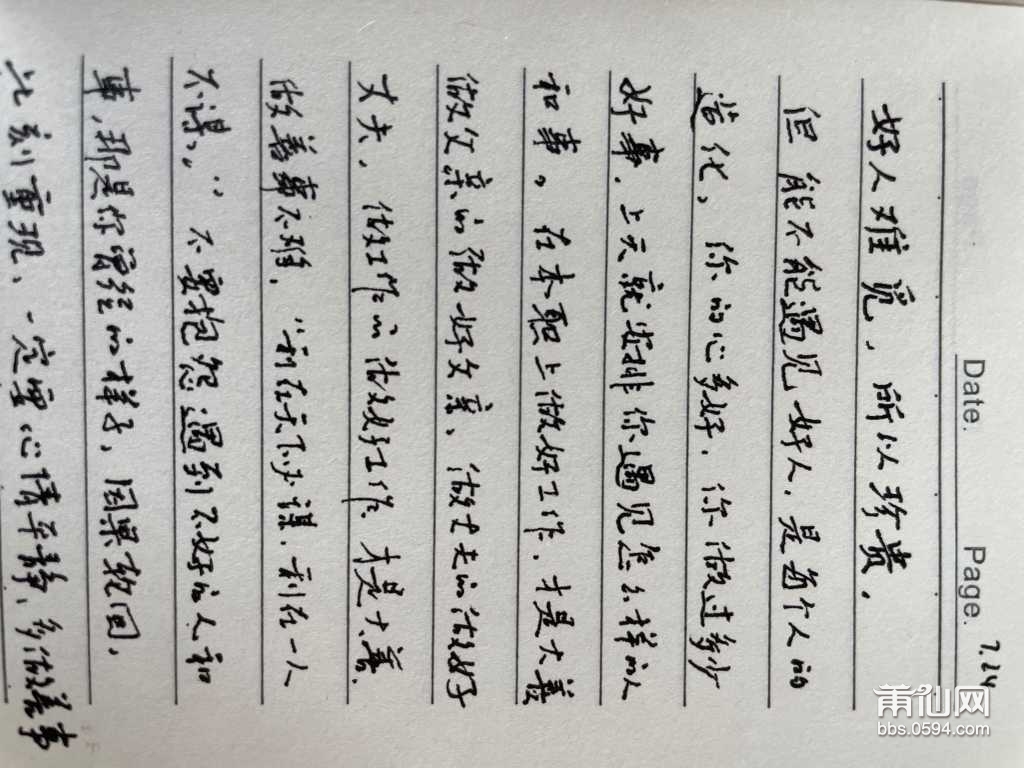 Date. Page. 7.24
好人难觅，所以珍贵。
但能不能遇见好人，是每个人的
造化，你的心多好，你做过多少
好事，上天就安排你遇见怎么样的人
和事。在本职上做好工作，才是大善
做父亲的做好父亲、做丈夫的做好
丈夫，做工作的做好工作，才是大善，
做善事不难，“利在天下必谋，利在一人
不谋，”不要抱怨遇到不好的人和
事，那是你曾经的样子，因果轮回，
此刻重现、一定要心情平静、多做善事
莆仙网
bbs.0594.com